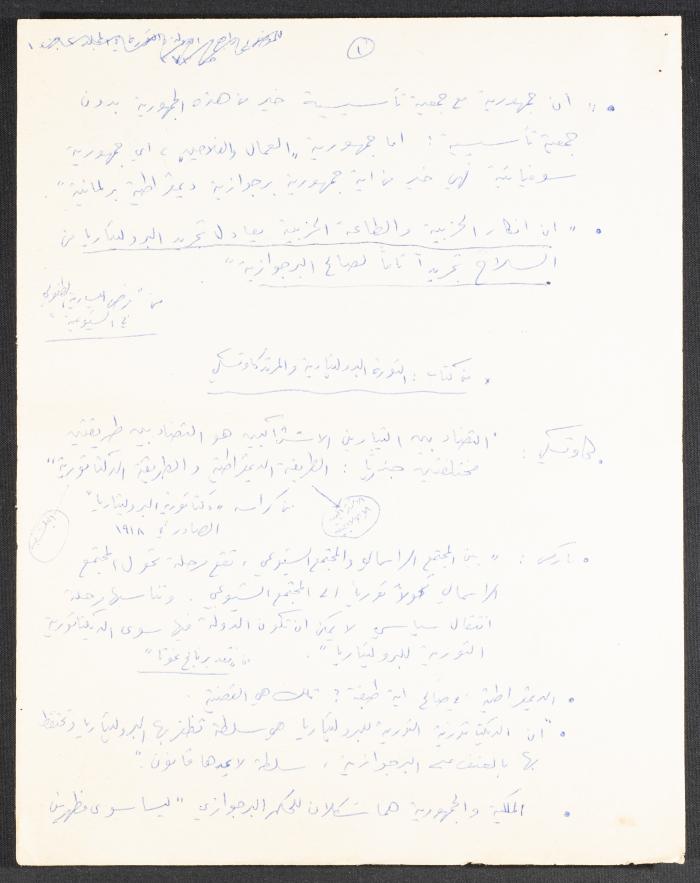 ١
• " ان جمهورية مع جمعية تأسيسية خير من هذه الجمهورية بدون
جمعية تأسيسية : اما جمهورية "العمال والفلاحين، اي جمهورية
سوفياتية فهي خير من اية جمهورية برجوازية ديمقراطية برلمانية".
• " ان انكار الحزبية والطاعة الحزبية يعادل تجريد البروليتاريا من
السلاح تجريداً تاماً لصالح البرجوازية".
من "مرض اليسارية الطفولي
في الشيوعية"
• من كتاب : الثورة البروليتارية والمرتد كاوتسكي
• كاوتسكي : "التضاد بين التيارين الاشتراكيين هو التضاد بين طريقتين
مختلفتين جذرياً : الطريقة الديمقراطية والطريقة الدكتاتورية"
من كراسه "دكتاتورية البروليتاريا"
الصادر في ١٩١٨
• ماركس : " بين المجتمع الرأسمالي والمجتمع الشيوعي، تقع مرحلة تحول المجتمع
الرأسمالي تحولاً ثورياً الى المجتمع الشيوعي . وتناسبها مرحلة
انتقال سياسي لا يمكن ان تكون الدولة فيها سوى الديكتاتورية
الثورية للبروليتاريا".
من "نقد برنامج غوتا"
• الديمقراطية في صالح اية طبقة ؟ تلك هي القضية.
• "ان الديكتاتورية الثورية للبروليتاريا هو سلطة تظفر بها البروليتاريا وتحتفظ
بها بالعنف على البرجوازية ، سلطة لا يحدها قانون."
• الملكية والجمهورية هما شكلان للحكم البرجوازي "ليسا سوى مظهرين